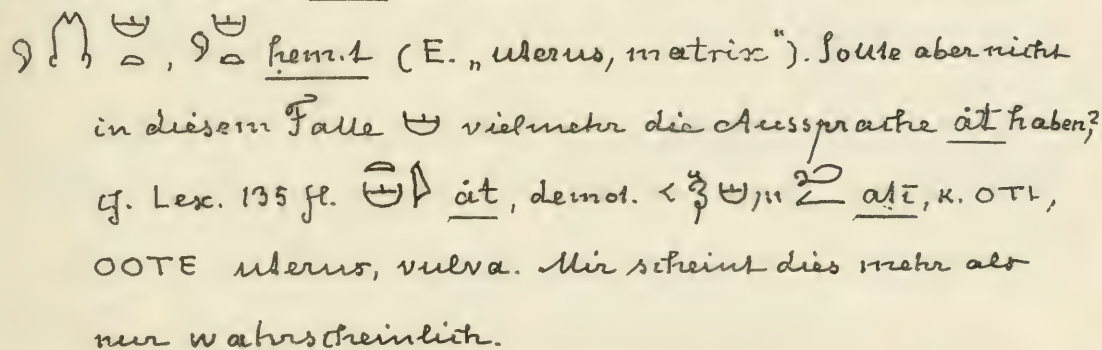 , hem.t (E. „uterus, matrix"). Sollte aber nicht
in diesem Falle vielmehr die Aussprache ȧt haben?
cf. Lex. 135 fl. ȧt, demot. ati, K. ⲞⲦⲒ,
ⲞⲞⲦⲈ uterus, vulva. Mir scheint dies mehr als
nur wahrscheinlich.